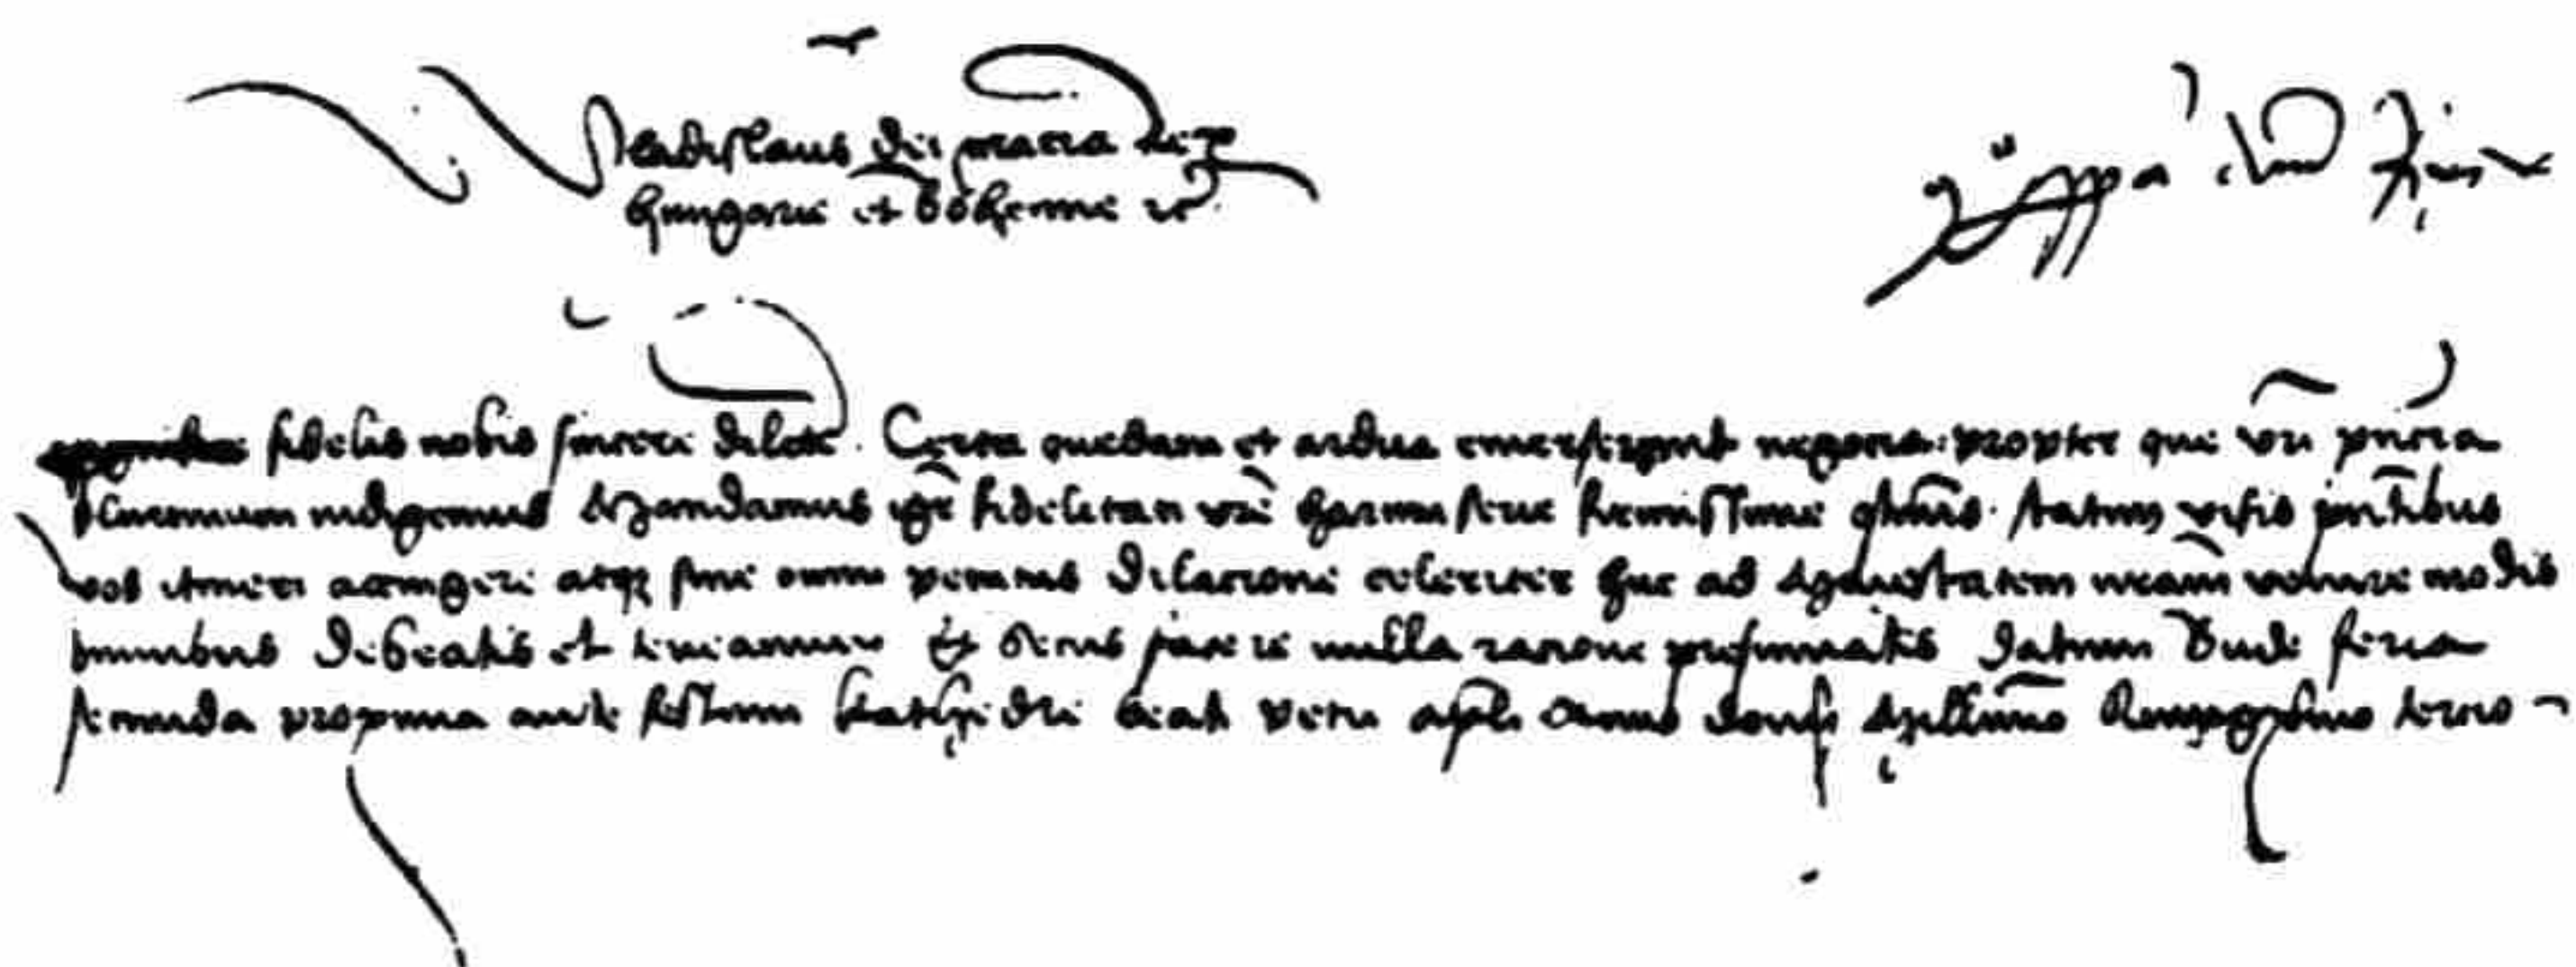 Wladislaus dei gracia Rex
hungarie et bohemie etc.
fidelis nobis sincere dilecte. Certa quedam et ardua emerserunt negocia: propter que vri pntia
plurimum indigemus Mandamus igr fidelitati vre harum serie firmissime qtnus. statim visis pntibus
vos itineri accingere atqz sine omni penitus dilacione celeriter huc ad Maiestatem nram venire modis
omnibus debeatis et teneamini Et secus facere nulla racione presumatis datum Bude feria
secunda proxima ante festum kathedre beati Petri apli Anno domini Millimo Quingentesimo tercio